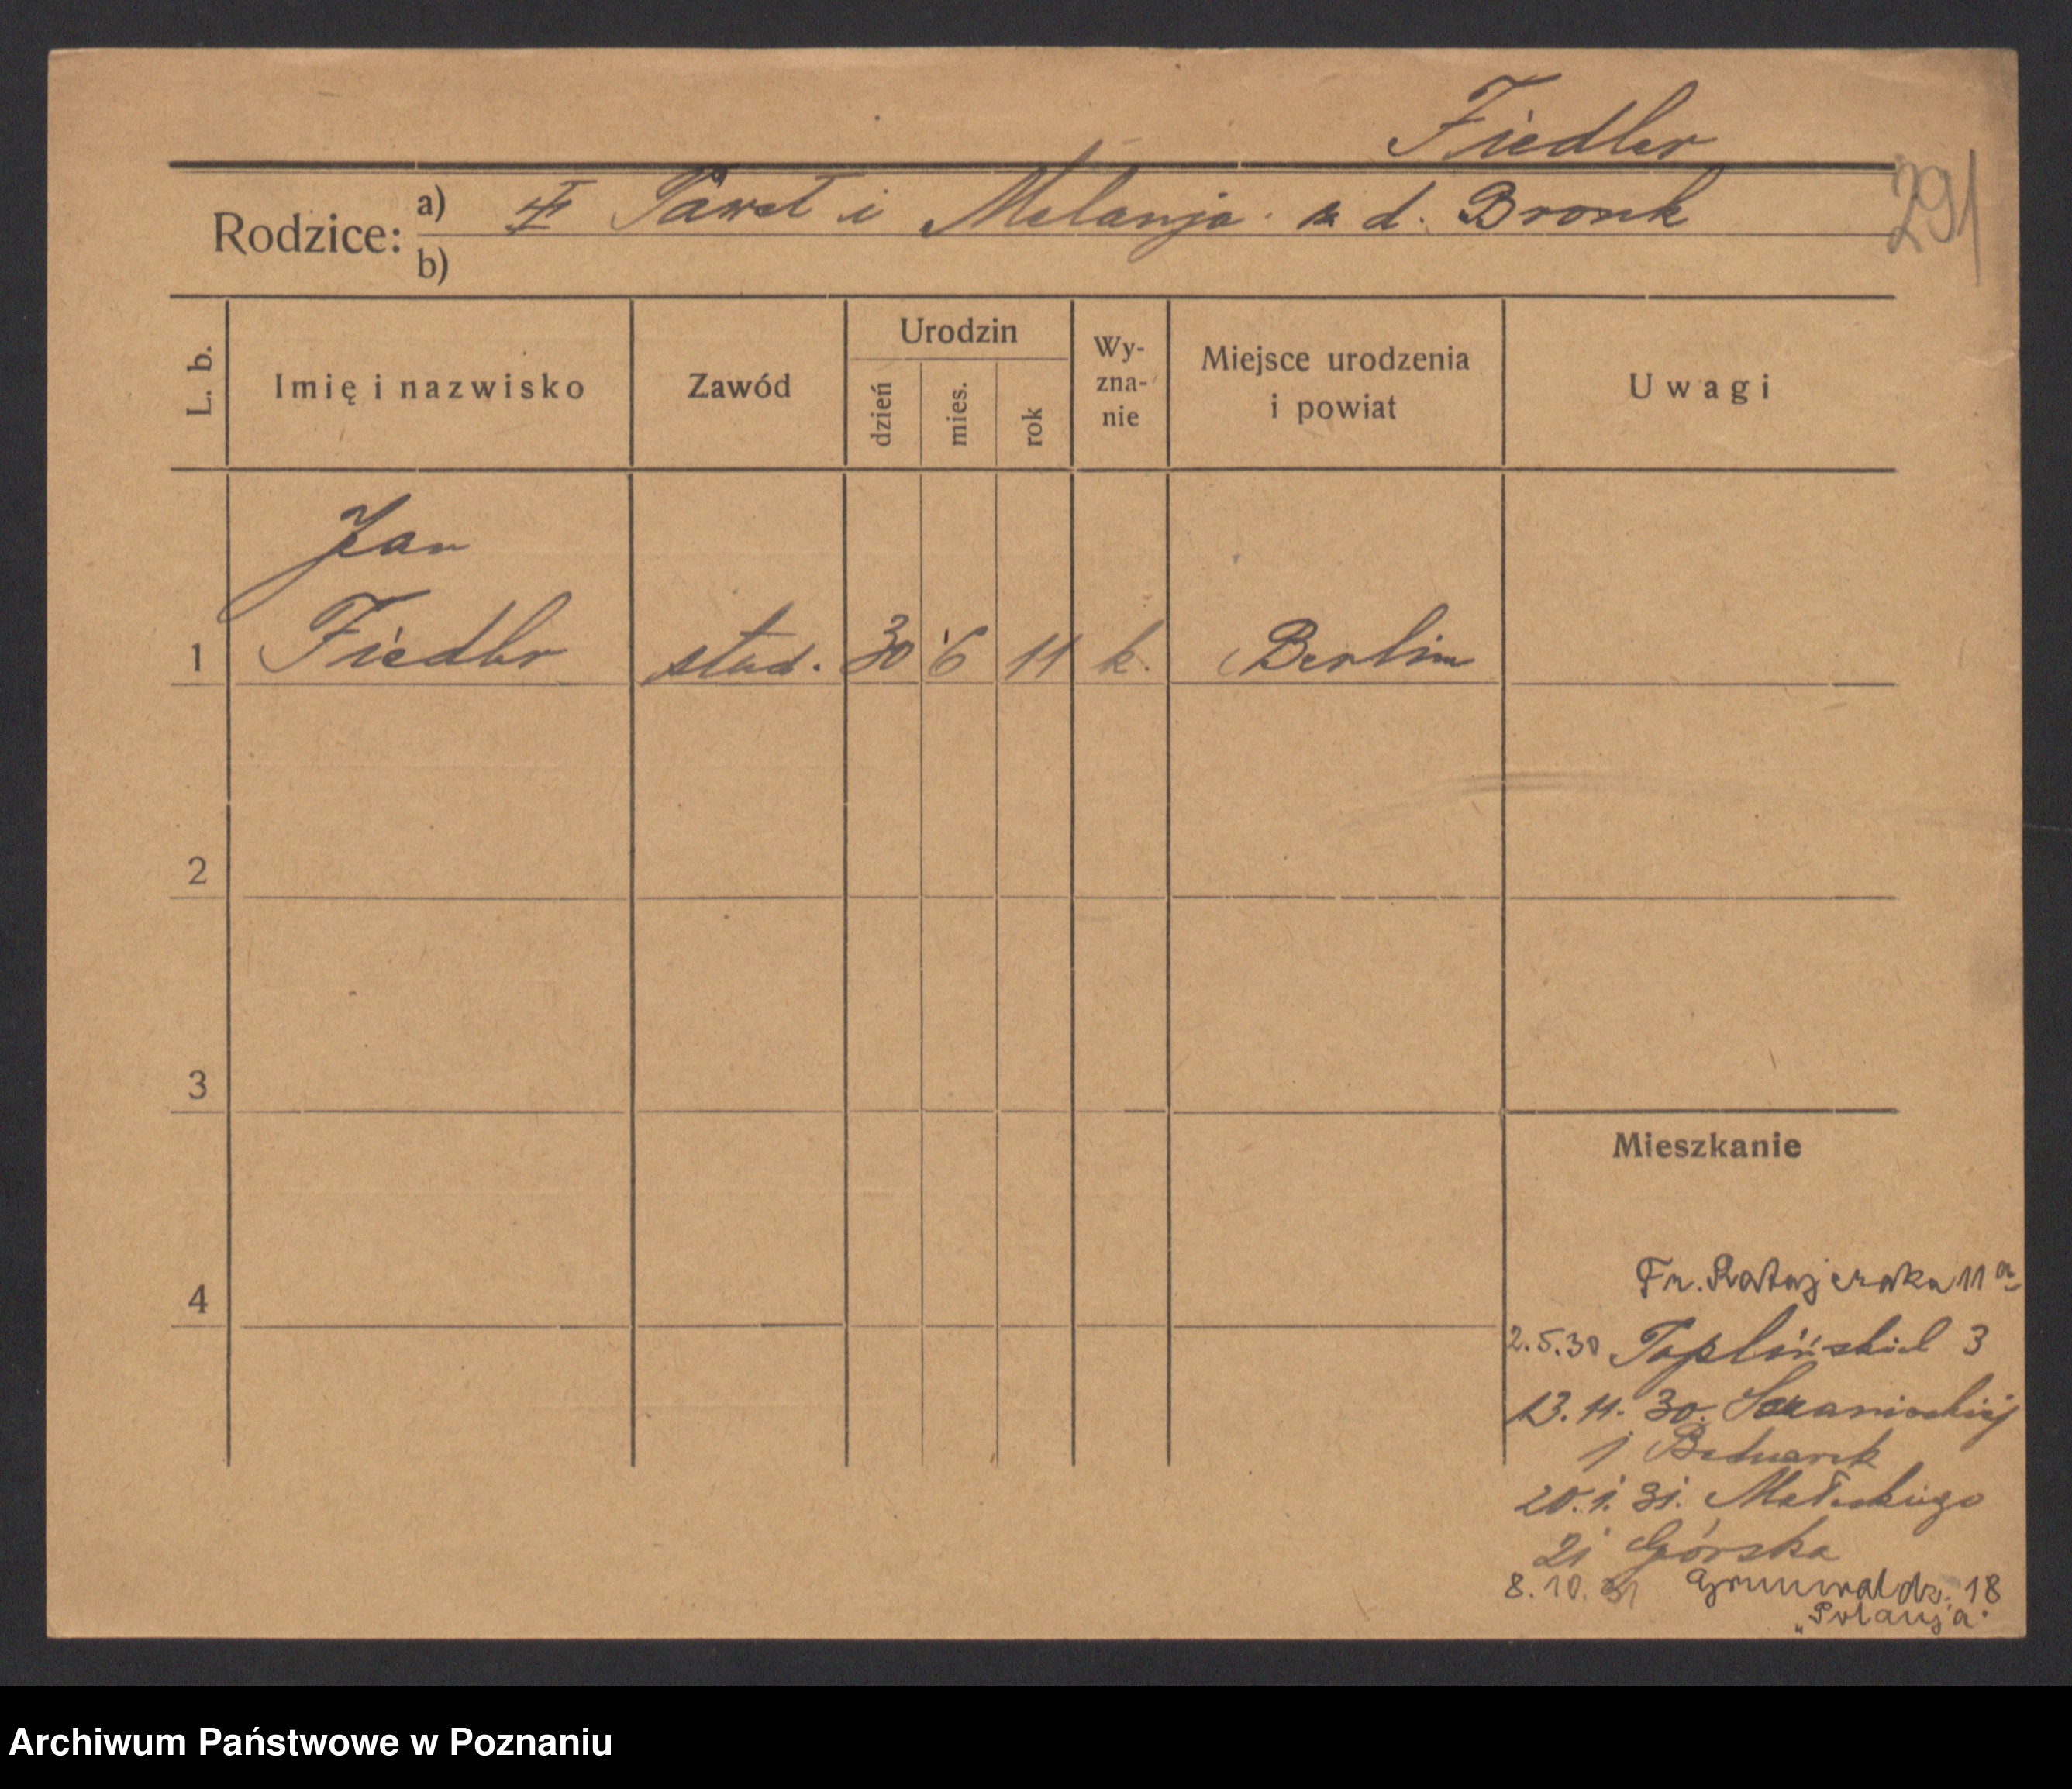 Fiedler
291
Rodzice:
a) Paweł i Melanja z d. Bronk
b)
L. b.
Imię i nazwisko
Zawód
Urodzin
dzień
mies.
rok
Wy-
zna-
nie
Miejsce urodzenia
i powiat
Uwagi
Jan
1 Fiedler stud. 30 6 11 k. Berlin
2
3
Mieszkanie
4
Fr. Ratajczaka 11 a
2.5.30 3
13.11.30.
1 Bednarek
20.1.31. Małeckiego
21 Górska
8.10.31 Grunwaldz. 18
"Polanja"
Archiwum Państwowe w Poznaniu